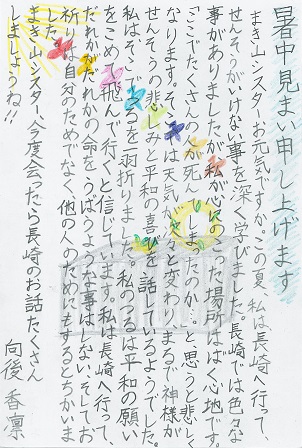 暑中見まい申し上げます
まき山シスターお元気ですか。この夏、私は長崎へ行って、
せんそうがいけない事を深く学びました。長崎では色々な
事がありましたが、私が心にのこった場所はばく心地です。
「ここでたくさんの人が死んでしまったのか…」と思うと悲しく
なります。は天気が変わり、まるで神様が
せんそうの悲しみと平和の喜びを話しているようでした。
私はそこでつるを一羽折りました。私のつるは平和の願い
をこめて飛んで行くと信じています。私は長崎へ行って、
だれかがだれかの命をうばうような事はしない、そしてお
祈りは自分のためでなく、他の人のためにもするとちかいま
した。
まき山シスター、今度会ったら長崎のお話たくさん
しましょうね!!
向後 香凛